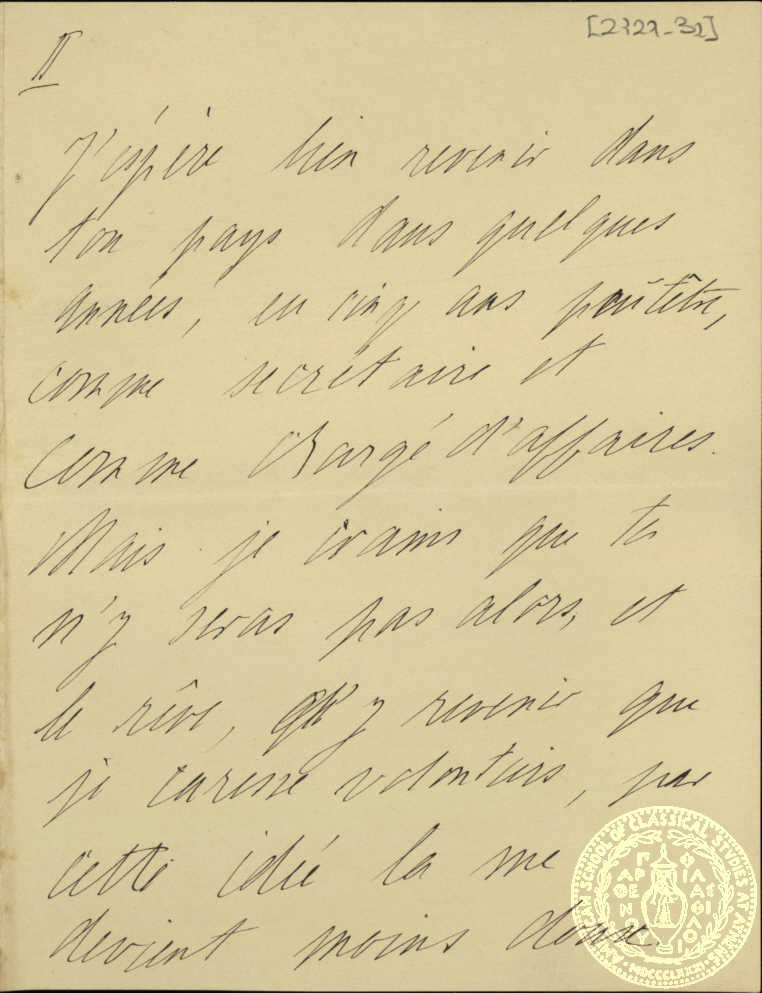 [2727-32]
II
J'espère bien revenir dans
ton pays dans quelques
années, en cinq ans peutêtre,
comme secrétaire et
comme Chargé d'affaires.
Mais je crains que tu
n'y seras pas alors, et
le rêve, d'y revenir que
je caresse volontiers, par
cette idée la me
devient moins doux.
AMERICAN SCHOOL OF CLASSICAL STUDIES AT ATHENS
ΠΑΡΘΕΝΟΥ ΦΙΛΑΣ ΑΓΙΟΥ
MDCCCLXXXI